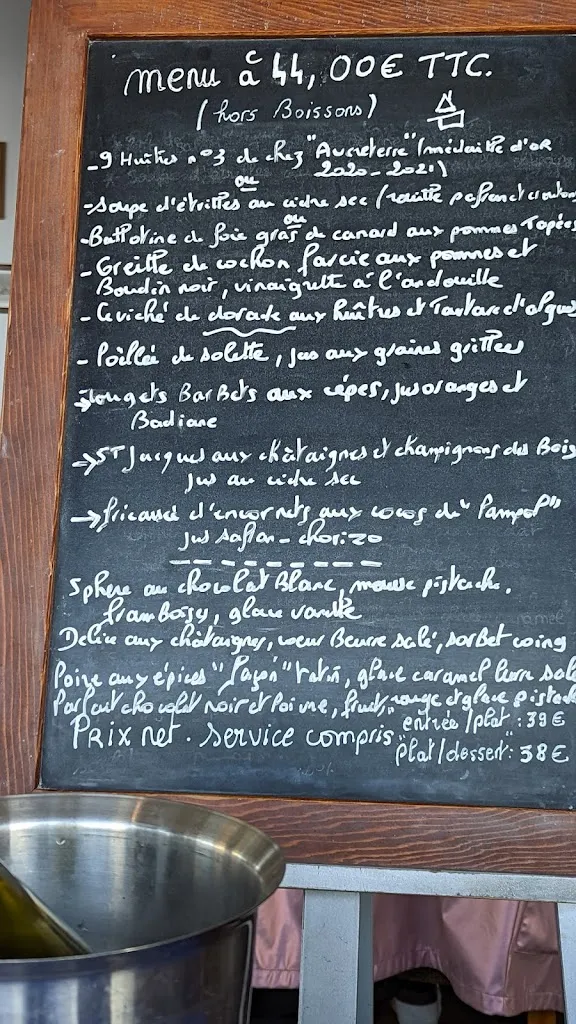 menu à 44,00€ TTC.
(hors Boissons)
- 9 Huîtres n°3 de chez "Aucreterre" (médaille d'OR
ou 2020-2021)
- Soupe d'étrilles au cidre sec (rouille safran et croutons
ou
- Ballotine de foie gras de canard aux pommes Tapées
- Oreille de cochon farcie aux pommes et
Boudin noir, vinaigrette à l'andouille
- Ceviché de dorade aux huîtres et Tartare d'algues
- Poêlée de solette, jus aux graines grillées
Rougets BarBets aux cèpes, jus oranges et
Badiane
→ ST Jacques aux châtaignes et champignons des Bois
jus au cidre sec
→ fricassé d'encornets aux cocos de "Pampol"
jus safran - chorizo
Sphère au chocolat Blanc, mousse pistache,
framboisy, glace vanille
Délice aux châtaignes, coeur Beurre salé, sorbet coing
Poire aux épices "façon" tatin, glace caramel beurre salé
Parfait chocolat noir et Poivre, fruits rouge et glace pistache
Prix net. service compris
entrée/plat : 39€
"plat/dessert": 38€